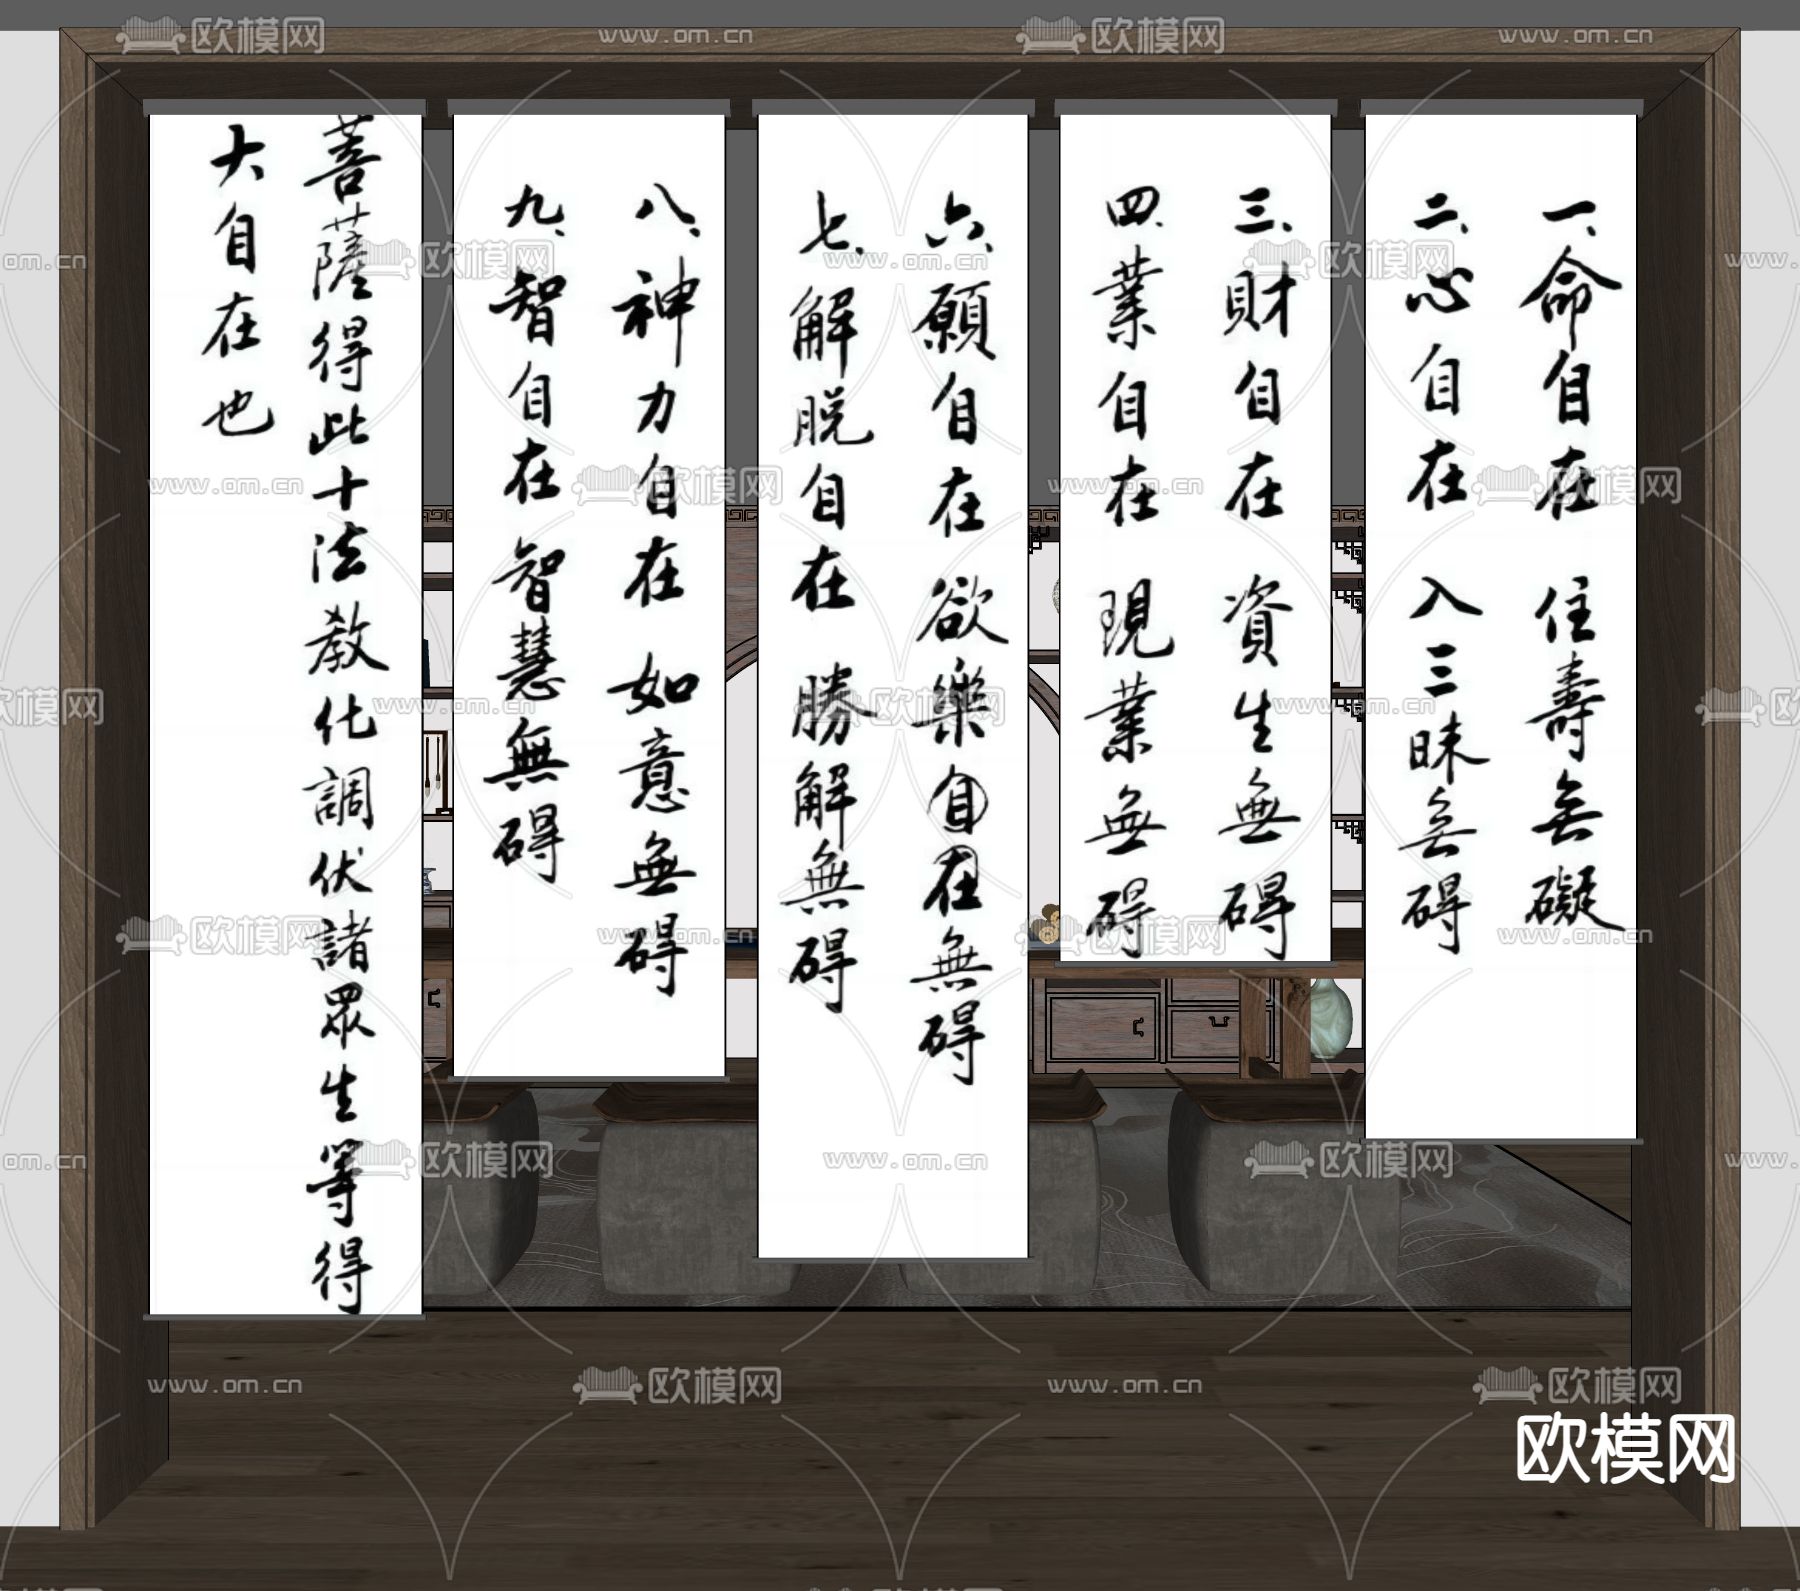 一、命自在 住壽無礙
二、心自在 入三昧無碍
三、財自在 資生無碍
四、業自在 現業無碍
六、願自在 欲樂自在無碍
七、解脱自在 勝解無碍
八、神力自在 如意無碍
九、智自在 智慧無碍
菩薩得此十法教化調伏諸眾生等得
大自在也
欧模网
www.om.cn